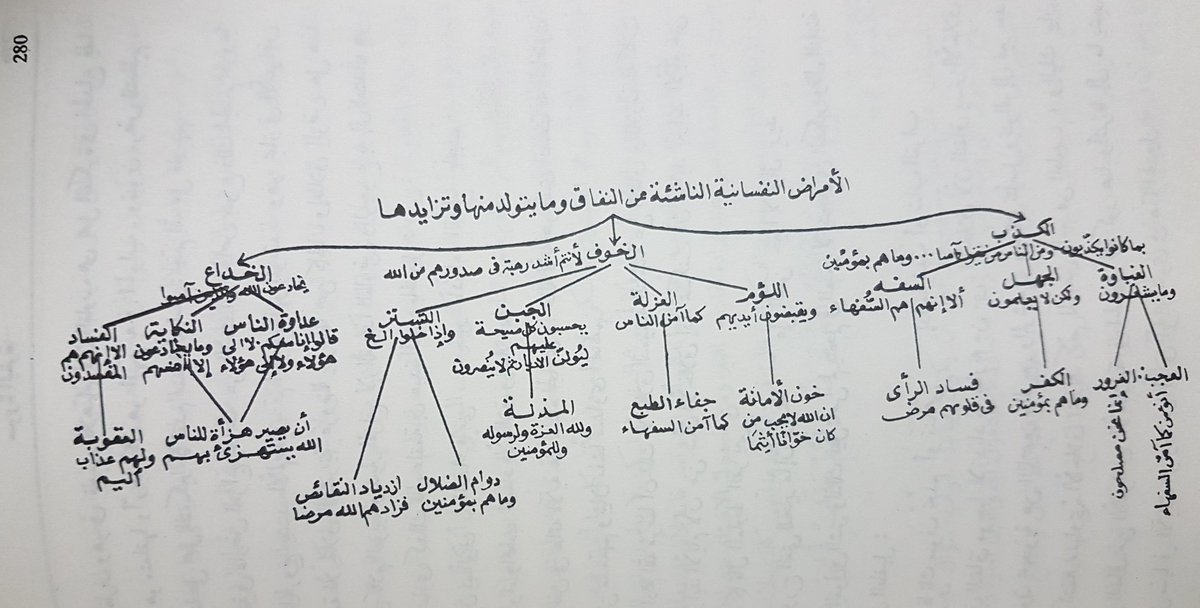 280
الأمراض النفسانية الناشئة عن النفاق وما يتولد منها وتزايدها
الكذب
بما كانوا يكذّبون ومن الناس من يقول آمنا ... وما هم بمؤمنين
الغباوة
وما يشعرون
العجب
أنؤمن كما آمن السفهاء
الغرور
إنما نحن مصلحون
الجهل
ولكن لا يعلمون
الكفر
وما هم بمؤمنين
السفه
ألا إنهم هم السُّفهاء
فساد الرأى
فى قلوبهم مرض
الخوف لأنتم أشد رهبة فى صدورهم من الله
اللؤم
ويقبضون أيديهم
خون الأمانة
ان الله لا يحب من
كان خوّانًا أثيمًا
العزلة
كما آمن الناس
جفاء الطبع
كما آمن السفهاء
الجبن
يحسبون كل صيحة
عليهم
ليُولُنّ الأدبار ثم لا يُنصرون
المذلة
ولله العزة ولرسوله
وللمؤمنين
التستر
وإذا خلوا الخ
دوام الضلال
وما هم بمؤمنين
ازدياد النقائص
فزادهم الله مرضا
الخداع
يخادعون الله والذين آمنوا
عداوة الناس
قالوا إنا معكم لا الى
هؤلاء ولا إلى هؤلاء
النكاية
وما يخادعون
إلا أنفسهم
أن يصير هزأة للناس
الله يستهزئ بهم
الفساد
الا إنهم هم
المفسدون
العقوبة
ولهم عذاب
أليم